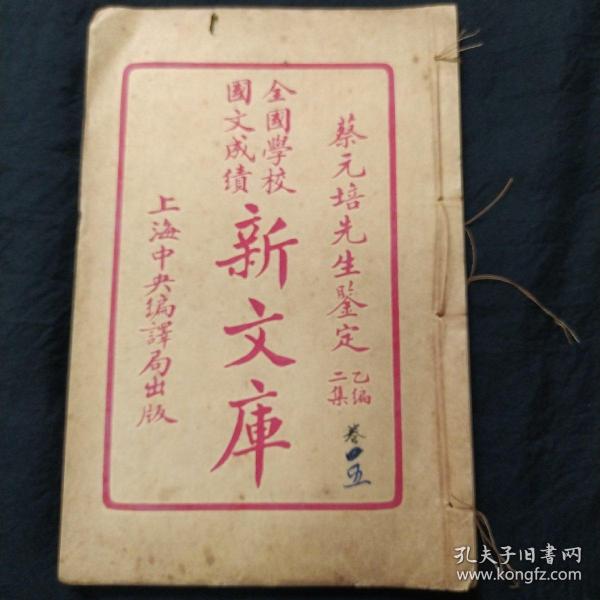 蔡元培先生鑒定
乙編
二集
卷五
全國學校
國文成績
新文庫
上海中央編譯局出版
孔夫子旧书网
www.kongfz.com